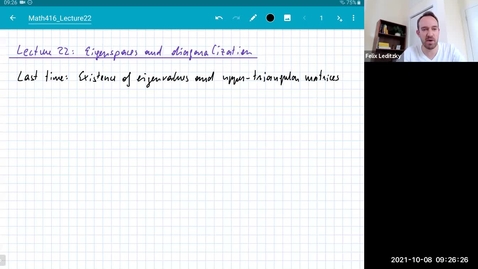 09:26
75%
Math416_Lecture22
1
Lecture 22: Eigenspaces and diagonalization
Last time: Existence of eigenvalues and upper-triangular matrices
Felix Leditzky
2021-10-08 09:26:26